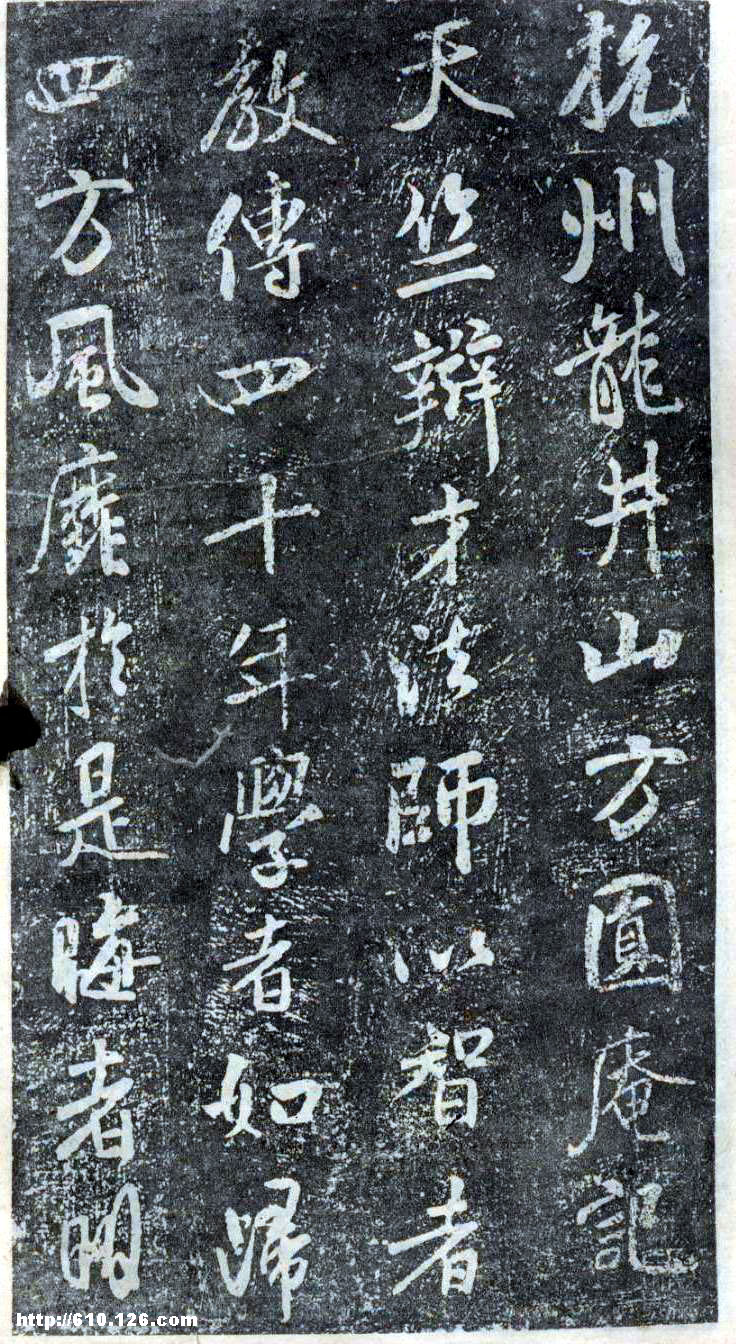 杭州龍井山方圓庵記
天竺辯才法師以智者
教傳四十年學者如歸
四方風靡於是晦者明
http://610.126.com